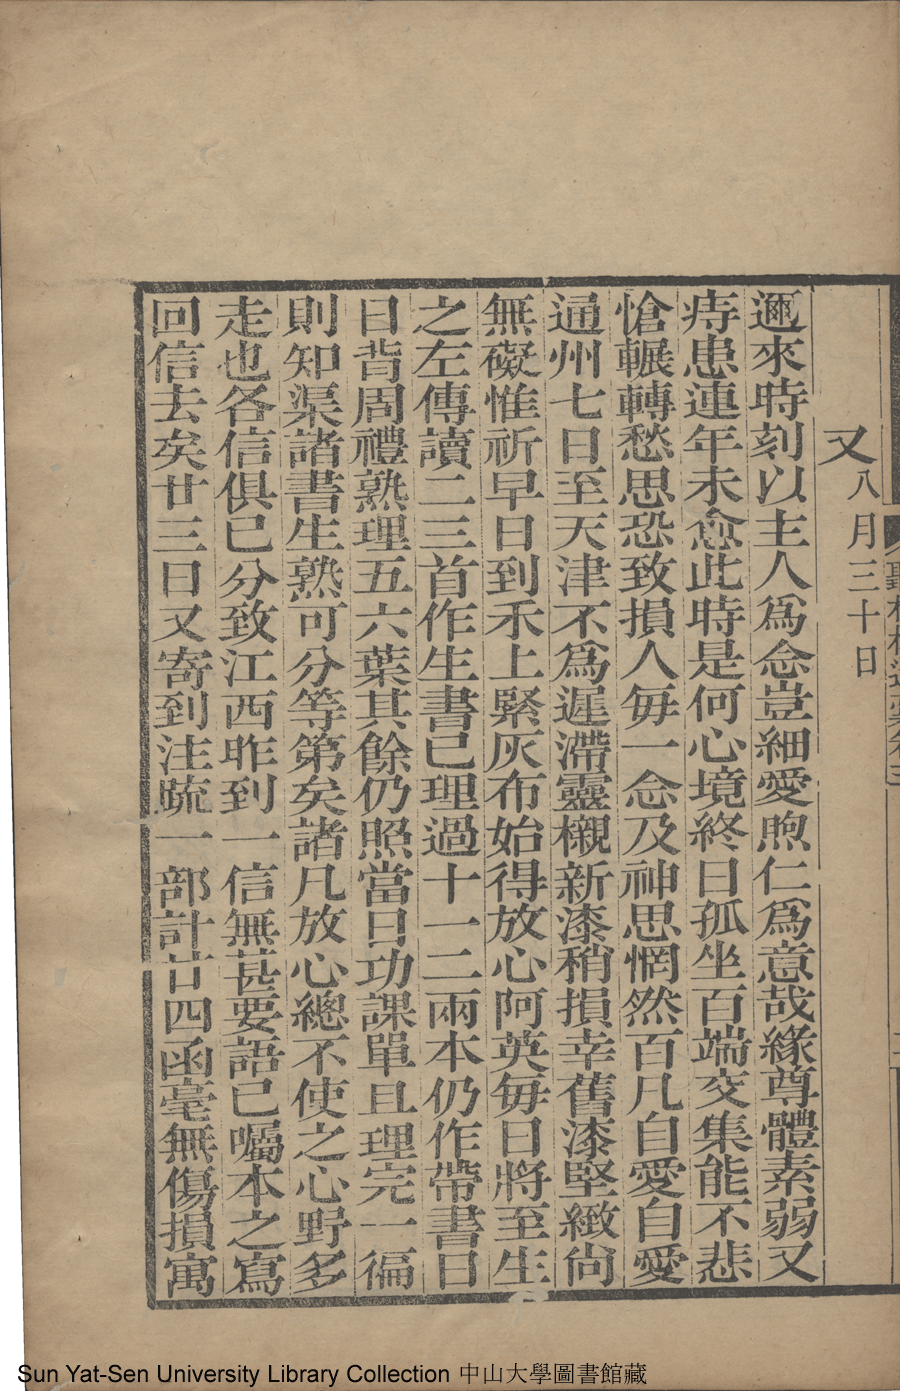 又八月三十日
邇來時刻以主人爲念豈細愛煦仁爲意哉緣尊體素弱又
痔患連年未愈此時是何心境終日孤坐百端交集能不悲
愴輾轉愁思恐致損人每一念及神思惘然百凡自愛自愛
通州七日至天津不爲遲滯靈櫬新漆稍損幸舊漆堅緻尚
無礙惟祈早日到禾上緊灰布始得放心阿英每日將至生
之左傳讀二三首作生書已理過十一二兩本仍作帶書日
日背周禮熟理五六葉其餘仍照當日功課單且理完一徧
則知渠諸書生熟可分等第矣諸凡放心總不使之心野多
走也各信俱已分致江西昨到一信無甚要語已囑本之寫
回信去矣廿三日又寄到注疏一部計廿四函毫無傷損寓
Sun Yat-Sen University Library Collection 中山大學圖書館藏